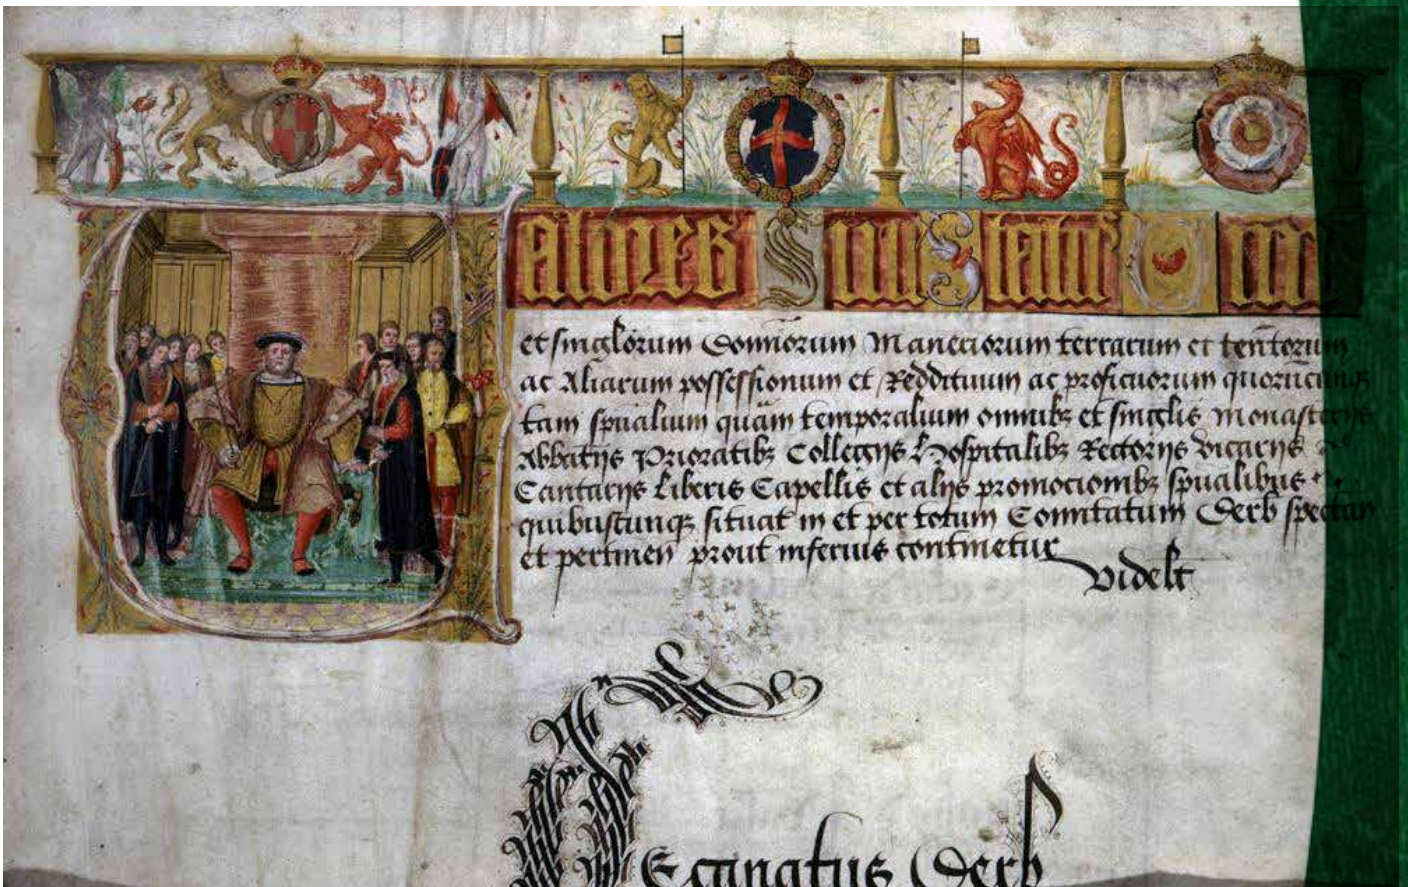 Valores
et singlorum Domiorum Maneriorum terrarum et tentorum
ac Aliarum possessionum et Reddituum ac proficuorum quorūcunqꝫ
tam spualium quam temporalium omnibꝫ et singlis monasterijs
Abbatijs Prioratibꝫ Collegijs Hospitalibꝫ Rectorijs Vicarijs
Cantarijs Liberis Capellis et alijs promocionibꝫ spualibus
quibuscunqꝫ situat in et per totum Comitatum Derb spectan
et pertinen prout inferius continetur
Videlt
Decanatus Derb